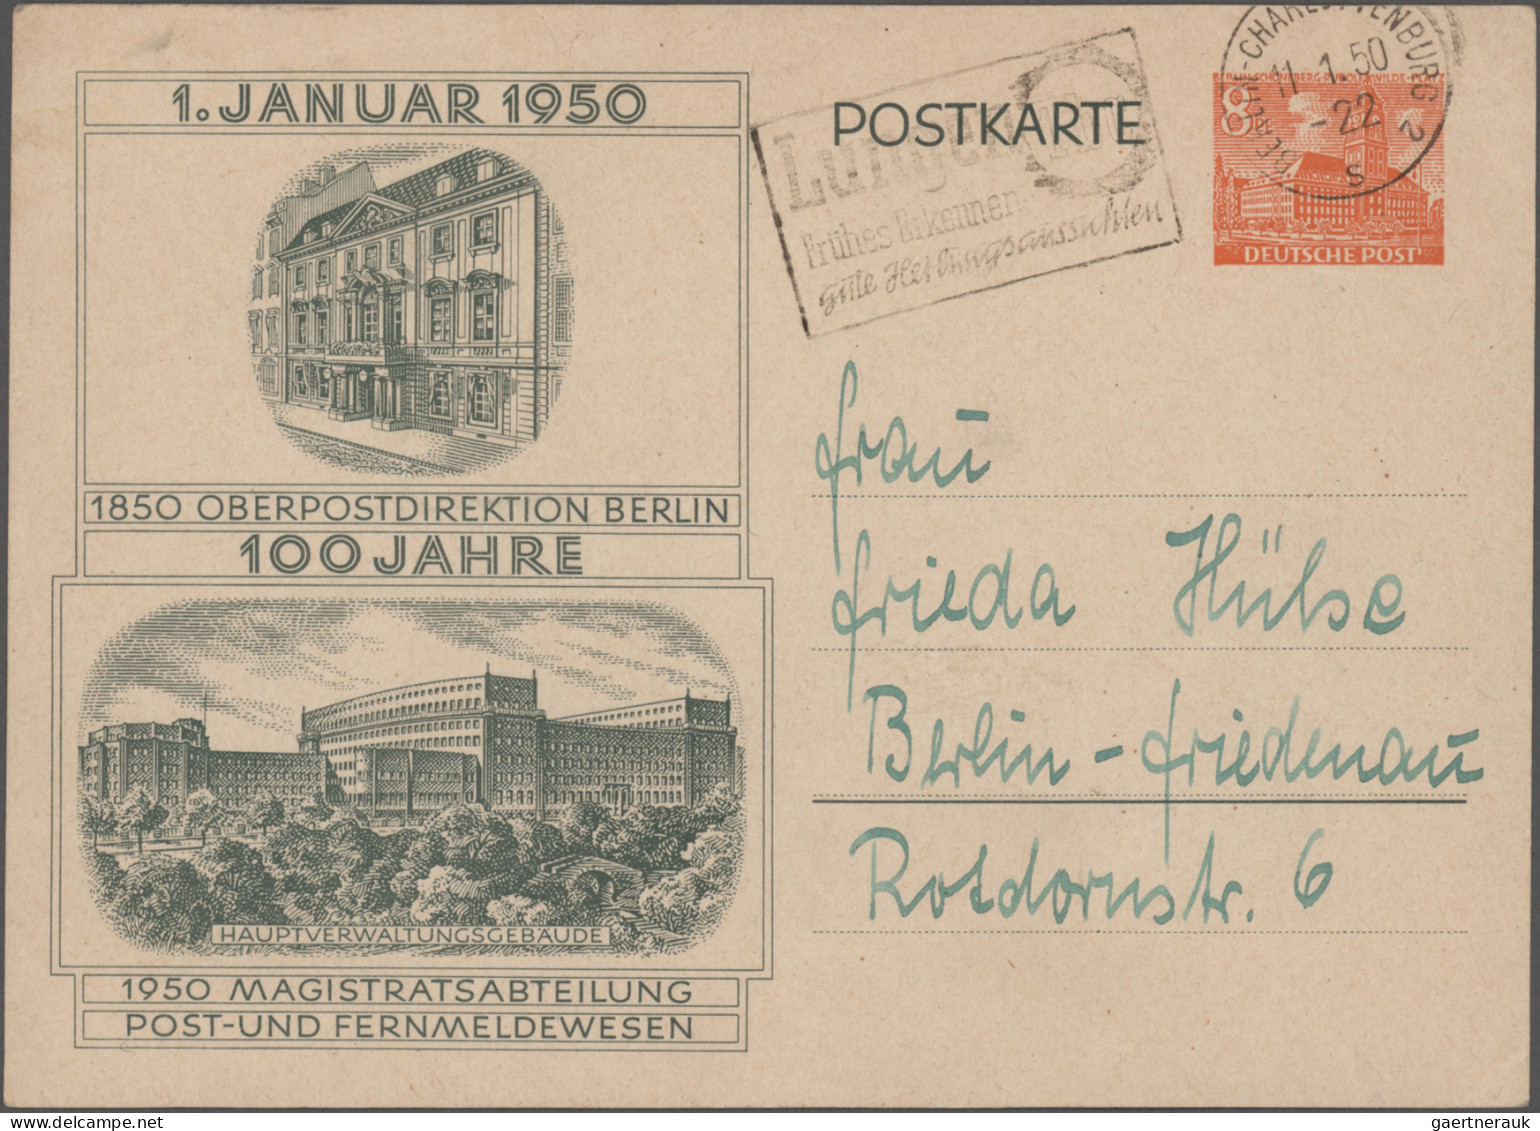 1. JANUAR 1950
1850 OBERPOSTDIREKTION BERLIN
100 JAHRE
HAUPTVERWALTUNGSGEBÄUDE
1950 MAGISTRATSABTEILUNG
POST-UND FERNMELDEWESEN
POSTKARTE
Lungen
Frühes Erkennen
gute Heilungsaussichten
BERLIN-CHARLOTTENBURG 2
11.1.50
-22
s
BERLIN-SCHÖNEBERG·RUDOLF WILDE-PLATZ
8
DEUTSCHE POST
Frau
Frieda Hülse
Berlin-Friedenau
Rotdornstr. 6
gaertnerauk